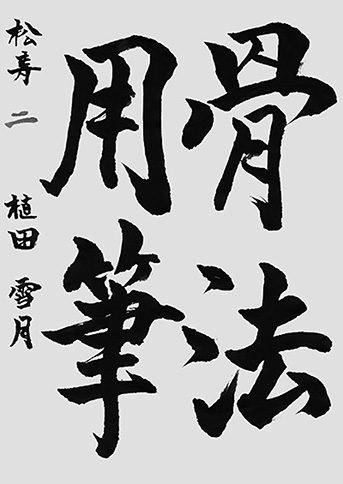 骨法
用筆
松寿 二 植田 雪月